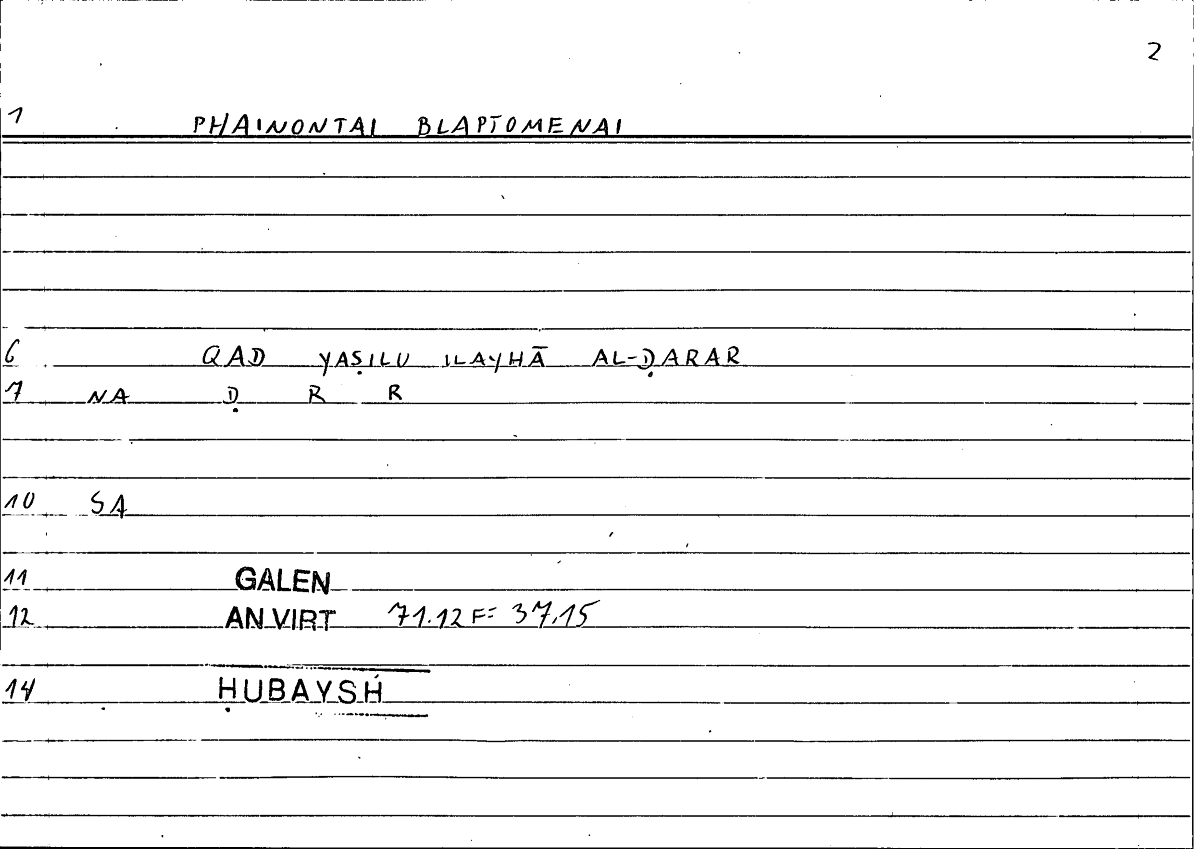 2
1 PHAINONTAI BLAPTOMENAI
6 QAD YAṢILU ILAYHĀ AL-ḌARAR
7 NA Ḍ R R
10 SA
11 GALEN
12 AN VIRT 71.12 F= 37.15
14 ḤUBAYSH